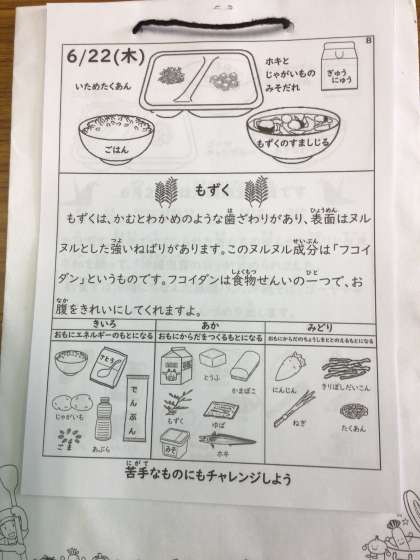 B
6/22(木)
いためたくあん
ホキと
じゃがいもの
みそだれ
ぎゅう
にゅう
ごはん
もずくのすましじる
もずく
もずくは、かむとわかめのような歯ざわりがあり、表面はヌル
ヌルとした強いねばりがあります。このヌルヌル成分は「フコイ
ダン」というものです。フコイダンは食物せんいの一つで、お
腹をきれいにしてくれますよ。
きいろ
おもにエネルギーのもとになる
あか
おもにからだをつくるもとになる
みどり
おもにからだのちょうしをととのえるもとになる
さとう
でんぷん
じゃがいも
あぶら
とうふ
かまぼこ
もずく
ゆば
みそ
ホキ
にんじん
きりぼしだいこん
ねぎ
たくあん
苦手なものにもチャレンジしよう